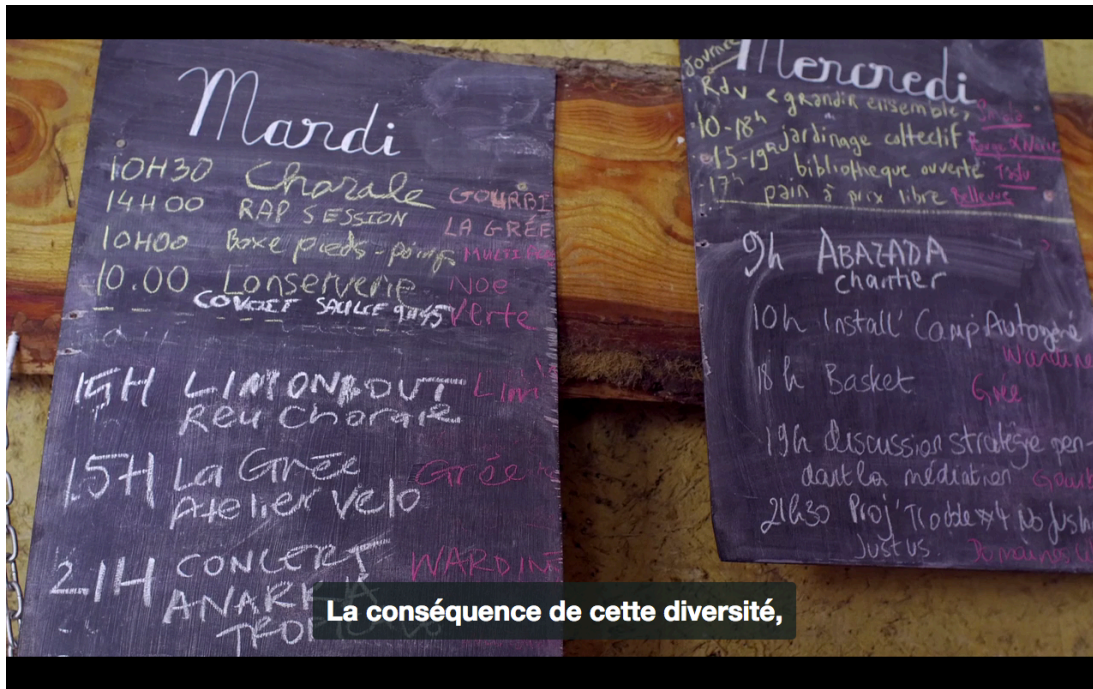 Mardi
10H30 Chorale GOURBI
14H00 RAP SESSION LA GRÉE
10H00 Boxe pieds-poings
10.00 Conserverie NOE
SAULCE 9H45 Verte
15H LIMONBOUT Limi
Reu Chorale
15H La Grée Grée
Atelier velo
21H CONCERT WARDINE
ANARK
TROP
Journée Mercredi
Rdv < grandir ensemble,
10-18h jardinage collectif
15-19h bibliotheque ouverte
17h pain à prix libre Bellevue
9h ABAZADA
chantier
10h Install' Camp Autogéré
18h Basket Grée
19h discussion stratégie pen-
dant la médiation
21h30 Proj' Trouble #4 No
Just us.
La conséquence de cette diversité,